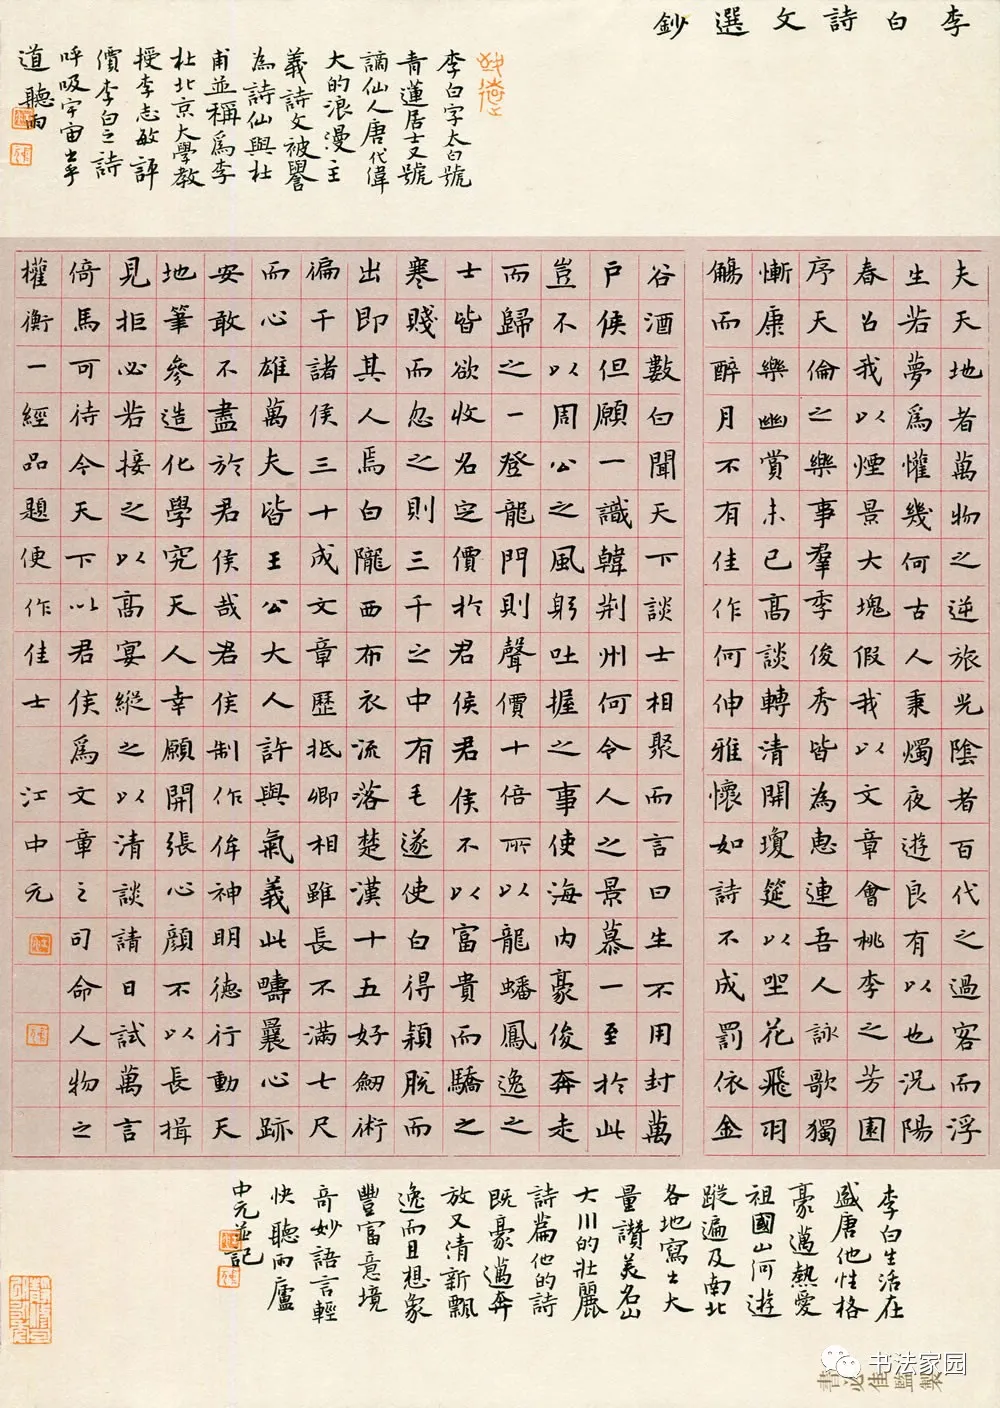 李白詩文選鈔
李白字太白號
青蓮居士又號
謫仙人唐代偉
大的浪漫主
義詩文被譽
為詩仙與杜
甫並稱爲李
杜北京大學教
授李志敏評
價李白之詩
呼吸宇宙出乎
道 聽雨
夫天地者萬物之逆旅光陰者百代之過客而浮
生若夢爲懽幾何古人秉燭夜遊良有以也況陽
春召我以煙景大塊假我以文章會桃李之芳園
序天倫之樂事羣季俊秀皆為惠連吾人詠歌獨
慚康樂幽賞未已高談轉清開瓊筵以坐花飛羽
觴而醉月不有佳作何伸雅懷如詩不成罰依金
谷酒數白聞天下談士相聚而言曰生不用封萬
戶侯但願一識韓荊州何令人之景慕一至於此
豈不以周公之風躬吐握之事使海內豪俊奔走
而歸之一登龍門則聲價十倍所以龍蟠鳳逸之
士皆欲收名定價於君侯君侯不以富貴而驕之
寒賤而忽之則三千之中有毛遂使白得穎脫而
出即其人焉白隴西布衣流落楚漢十五好劒術
徧干諸侯三十成文章歷抵卿相雖長不滿七尺
而心雄萬夫皆王公大人許與氣義此疇曩心跡
安敢不盡於君侯哉君侯制作侔神明德行動天
地筆參造化學究天人幸願開張心顏不以長揖
見拒必若接之以高宴縱之以清談請日試萬言
倚馬可待今天下以君侯爲文章之司命人物之
權衡一經品題使作佳士 江中元
李白生活在
盛唐他性格
豪邁熱愛
祖國山河遊
蹤遍及南北
各地寫出大
量讚美名山
大川的壯麗
詩篇他的詩
既豪邁奔
放又清新飄
逸而且想象
豐富意境
奇妙語言輕
快聽雨廬
中元並記
书法家园